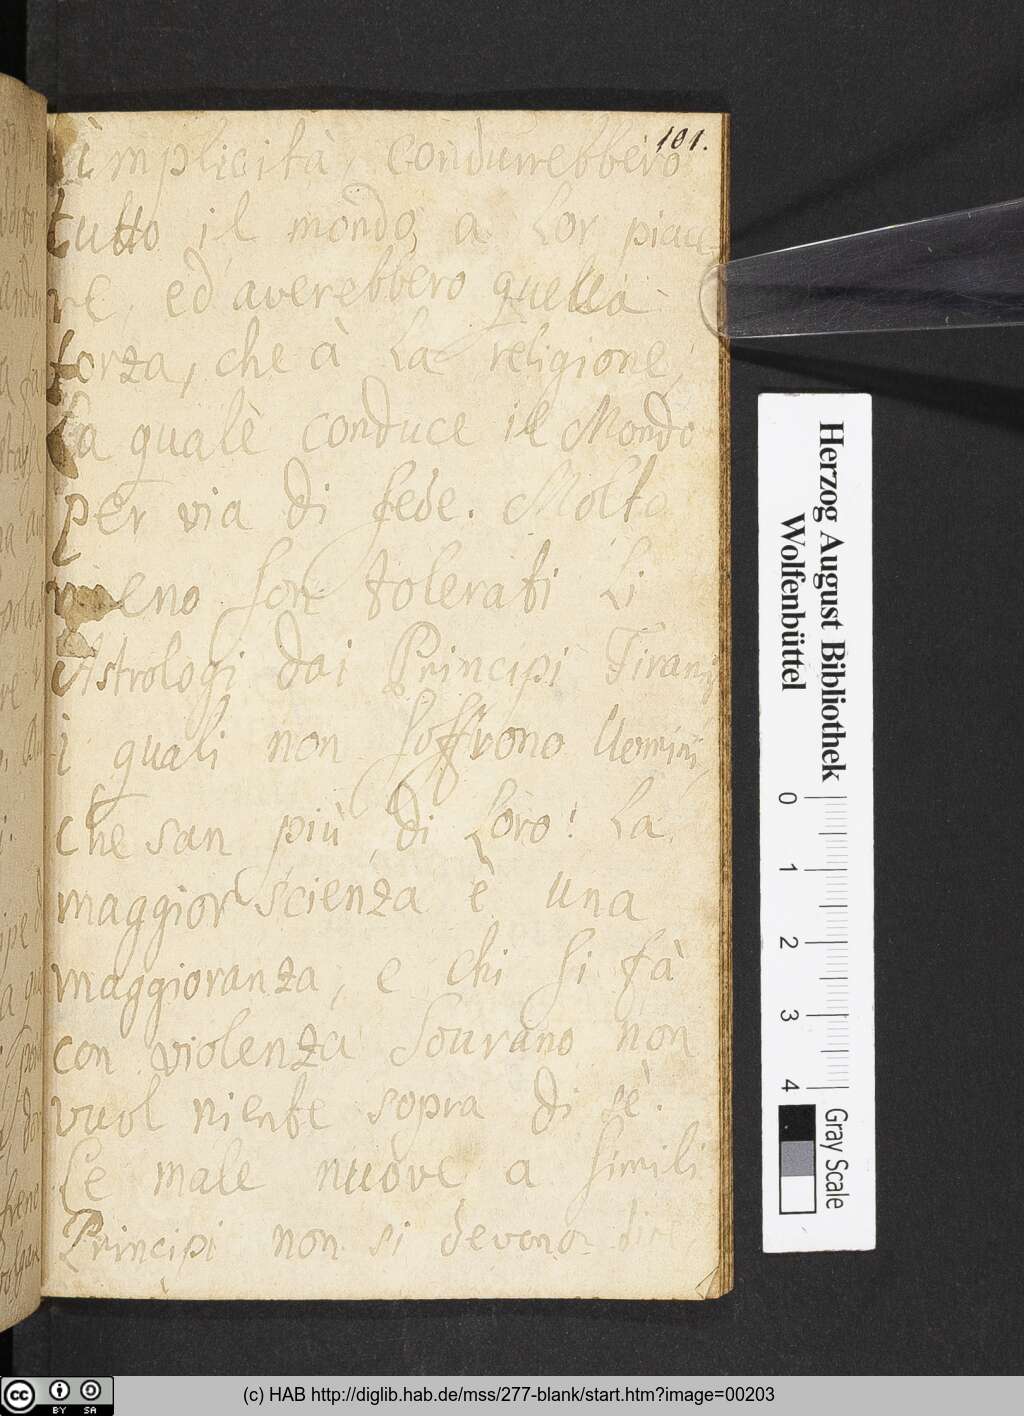 101.
implicità, condurrebbero
tutto il mondo, a lor piace
re, ed averebbero quella
forza, che à la religione,
la quale conduce il Mondo
per via di fede. Molto
meno son tolerati li
Astrologi dai Principi Tirani,
i quali non soffrono Uomini,
che san più di loro! La
maggior scienza è una
maggioranza, e chi si fà
con violenza Sourano non
vuol niente sopra di sè.
Le male nuove a simili
Principi non si devono dire
Herzog August Bibliothek
Wolfenbüttel
0 1 2 3 4
Gray Scale
cc BY SA
(c) HAB http://diglib.hab.de/mss/277-blank/start.htm?image=00203